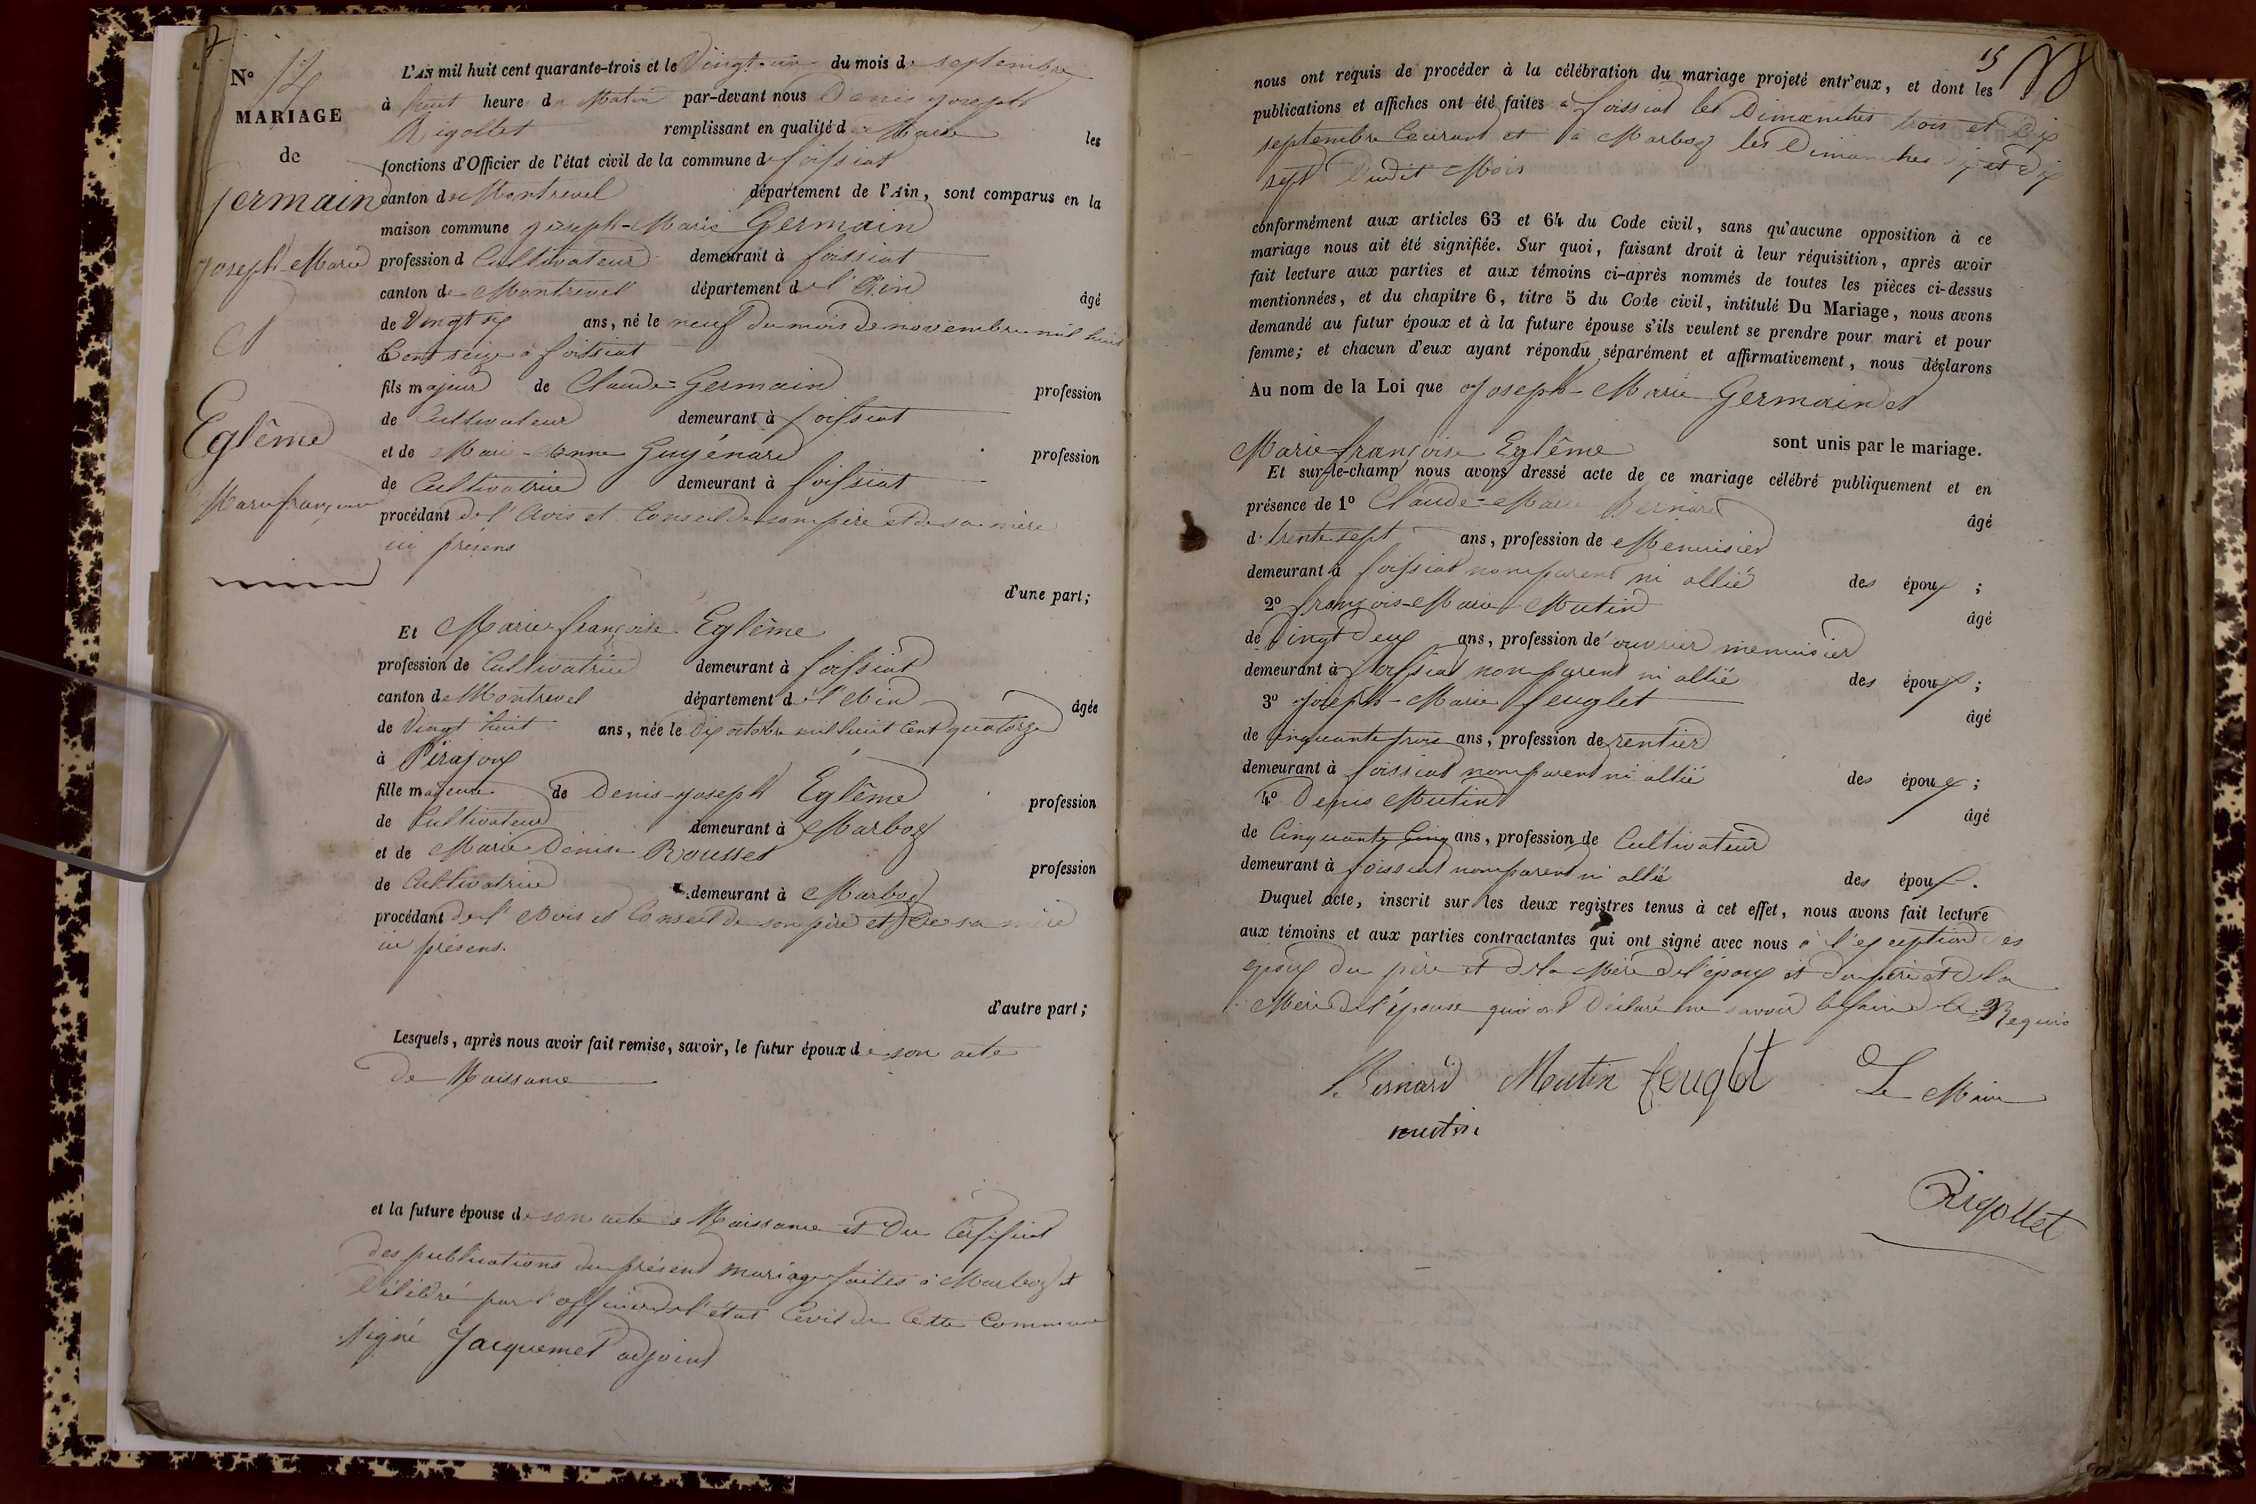 N° 17
MARIAGE
de
Germain
Joseph-Marie
et
Eglême
Marie françoise
L'AN mil huit cent quarante-trois et le Vingt-un du mois de septembre
à huit heure du Matin par-devant nous Denis Joseph
Rigollet remplissant en qualité de Maire les
fonctions d'Officier de l'état civil de la commune de foissiat
canton de Montrevel département de l'Ain, sont comparus en la
maison commune joseph-Marie Germain
profession d Cultivateur demeurant à foissiat
canton de Montrevel département de l'Ain âgé
de Vingt six ans, né le neuf du mois de novembre mil huit
Cent seize à foissiat
fils majeur de Claude Germain profession
de Cultivateur demeurant à foissiat
et de Marie-Anne Guyénard profession
de Cultivatrice demeurant à foissiat
procédant de l'Avis et Conseil de son père et de sa mère
ici présens
d'une part;
Et Marie françoise Eglême
profession de Cultivatrice demeurant à foissiat
canton de Montrevel département de l'Ain âgée
de Vingt huit ans, née le Dix octobre mil huit Cent quatorze
à Pirajoux
fille majeure de Denis-joseph Eglême profession
de Cultivateur demeurant à Marboz
et de Marie Denise Rousset profession
de Cultivatrice demeurant à Marboz
procédant de l'Avis et Conseil de son père et de sa mère
ici présens.
d'autre part;
Lesquels, après nous avoir fait remise, savoir, le futur époux de son acte
de Naissance
et la future épouse de son acte de Naissance et Du Certificat
des publications du présent mariage faites à Marboz et
Délibré par l'officier de l'état Civil de Cette Commune
signé Jacquemet adjoint
15
nous ont requis de procéder à la célébration du mariage projeté entr'eux, et dont les
publications et affiches ont été faites à foissiat les Dimanches trois et Dix
septembre Courant et à Marboz les Dimanches dix et Dix
sept Dudit Mois
conformément aux articles 63 et 64 du Code civil, sans qu'aucune opposition à ce
mariage nous ait été signifiée. Sur quoi, faisant droit à leur réquisition, après avoir
fait lecture aux parties et aux témoins ci-après nommés de toutes les pièces ci-dessus
mentionnées, et du chapitre 6, titre 5 du Code civil, intitulé Du Mariage, nous avons
demandé au futur époux et à la future épouse s'ils veulent se prendre pour mari et pour
femme; et chacun d'eux ayant répondu séparément et affirmativement, nous déclarons
Au nom de la Loi que Joseph-Marie Germain et
Marie françoise Eglême sont unis par le mariage.
Et sur-le-champ nous avons dressé acte de ce mariage célébré publiquement et en
présence de 1° Claude-Marie Bernard âgé
d trente sept ans, profession de Menuisier
demeurant à foissiat non parent ni allié des époux;
2° françois-Marie Mutin âgé
de Vingt Deux ans, profession de ouvrier menuisier
demeurant à foissiat non parent ni allié des époux;
3° joseph-Marie feuglet âgé
de Cinquante trois ans, profession de rentier
demeurant à foissiat non parent ni allié des époux;
4° Denis Mutin âgé
de Cinquante Cinq ans, profession de Cultivateur
demeurant à foissiat non parent ni allié des époux.
Duquel acte, inscrit sur les deux registres tenus à cet effet, nous avons fait lecture
aux témoins et aux parties contractantes qui ont signé avec nous à l'exception des
époux du père et de la Mère de l'époux et du père et de la
Mère de l'épouse qui ont Déclaré ne savoir le faire de ce Requis
Bernard Mutin feuglet Le Maire
mutin
Rigollet